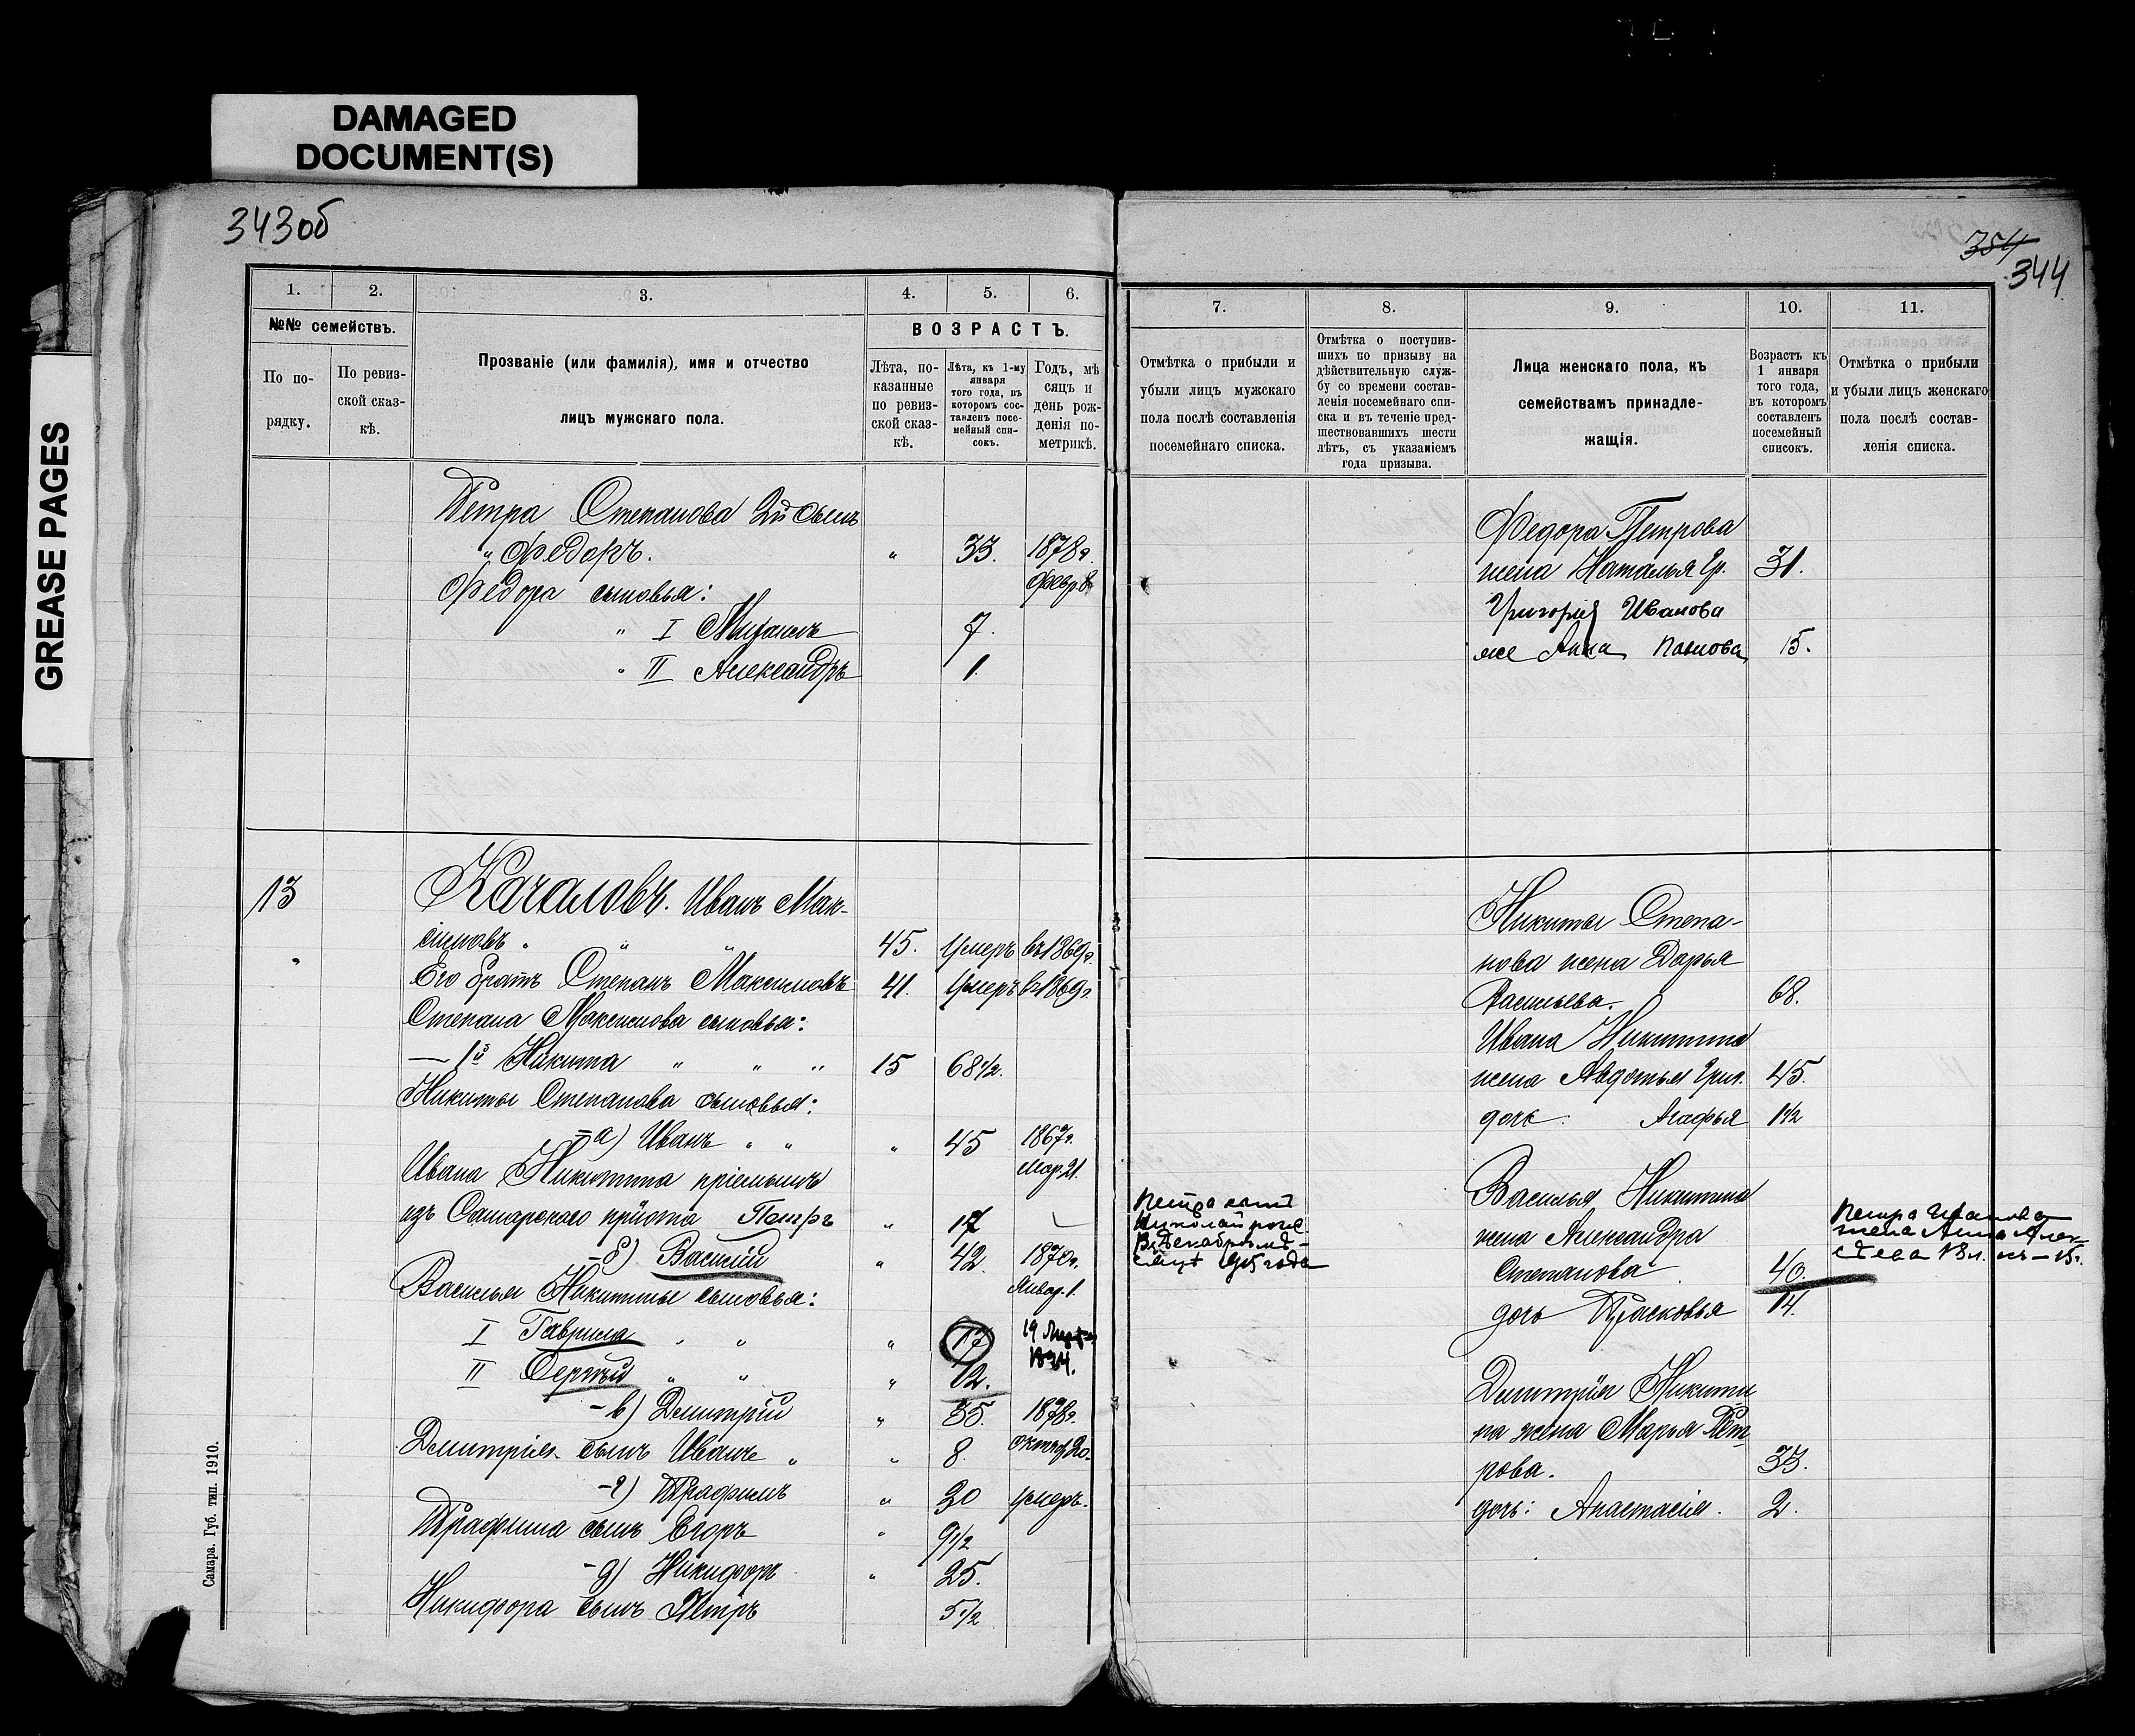 DAMAGED
DOCUMENT(S)
GREASE PAGES
343об
1.
2.
3.
4.
5.
6.
№№ семействъ.
ВОЗРАСТЪ.
По по-
рядку.
По ревиз-
ской сказ-
кѣ.
Прозваніе (или фамилія), имя и отчество
лицъ мужскаго пола.
Лѣта, по-
казанные
по ревиз-
ской сказ-
кѣ.
Лѣта, къ 1-му
января
того года, въ
которомъ сос-
тавленъ посе-
мейный спи-
сокъ.
Годъ, мѣ
сяцъ и
день рож-
денія по-
метрикѣ.
Петра Степанова 2й сынъ
" Федоръ. " 33. 1878г.
Федора сыновья: Февр. 8
" I Михаилъ 7.
" II Александръ 1.
13 Качаловъ. Иванъ Мак-
симовъ " " " 45. Умеръ въ 1869г.
Его братъ Степанъ Максимовъ 41. Умеръ въ 1869г.
Степана Максимова сыновья:
— 1й Никита " " " 15 68 1/2.
Никиты Степанова сыновья:
- а) Иванъ " " " 45 1867г.
Мар. 21.
Ивана Никитина пріемышъ
изъ Самарскаго пріюта Петръ " 17
- б) Василій " 42. 1870г.
Январ. 1.
Василья Никитины сыновья:
I Гаврила " " " 17 19 Марта
1894.
II Сергѣй " " " 12.
- в) Дмитрій " 35. 1878г.
Октяб 20.
Дмитрія сынъ Иванъ " " 8.
- г) Трафимъ " 20 умеръ.
Трафима сынъ Егоръ " 9 1/2
- д) Никифоръ " 25.
Никифора сынъ Петръ 5 1/2
Самара. Губ. тип. 1910.
354
344
7.
8.
9.
10.
11.
Отмѣтка о прибыли и
убыли лицъ мужскаго
пола послѣ составленія
посемейнаго списка.
Отмѣтка о поступив-
шихъ по призыву на
дѣйствительную служ-
бу со времени состав-
ленія посемейнаго спи-
ска и въ теченіе пред-
шествовавшихъ шести
лѣтъ, съ указаніемъ
года призыва.
Лица женскаго пола, къ
семействамъ принадле-
жащія.
Возрастъ къ
1 января
того года,
въ которомъ
составленъ
посемейный
списокъ.
Отмѣтка о прибыли
и убыли лицъ женскаго
пола послѣ состав-
ленія списка.
Федора Петрова
жена Наталья Гр. 31.
Григорія Иванова
же Анна Павлова 15.
Никиты Степа-
нова жена Дарья
Васильева. 68.
Ивана Никитина
жена Авдотья Григ. 45.
дочь: Агафья 1 1/2
Василья Никитина
жена Александра
Степанова 40.
дочь Прасковья 14.
Дмитрія Никити
на жена Марья Пет-
рова. 33.
дочь: Анастасія. 2.
Петра сынъ
Николай рожд.
въ Декабрѣ мѣ-
сяцѣ 1915 года
Петра Иванова
жена Анна Алек-
сѣева 18 л.